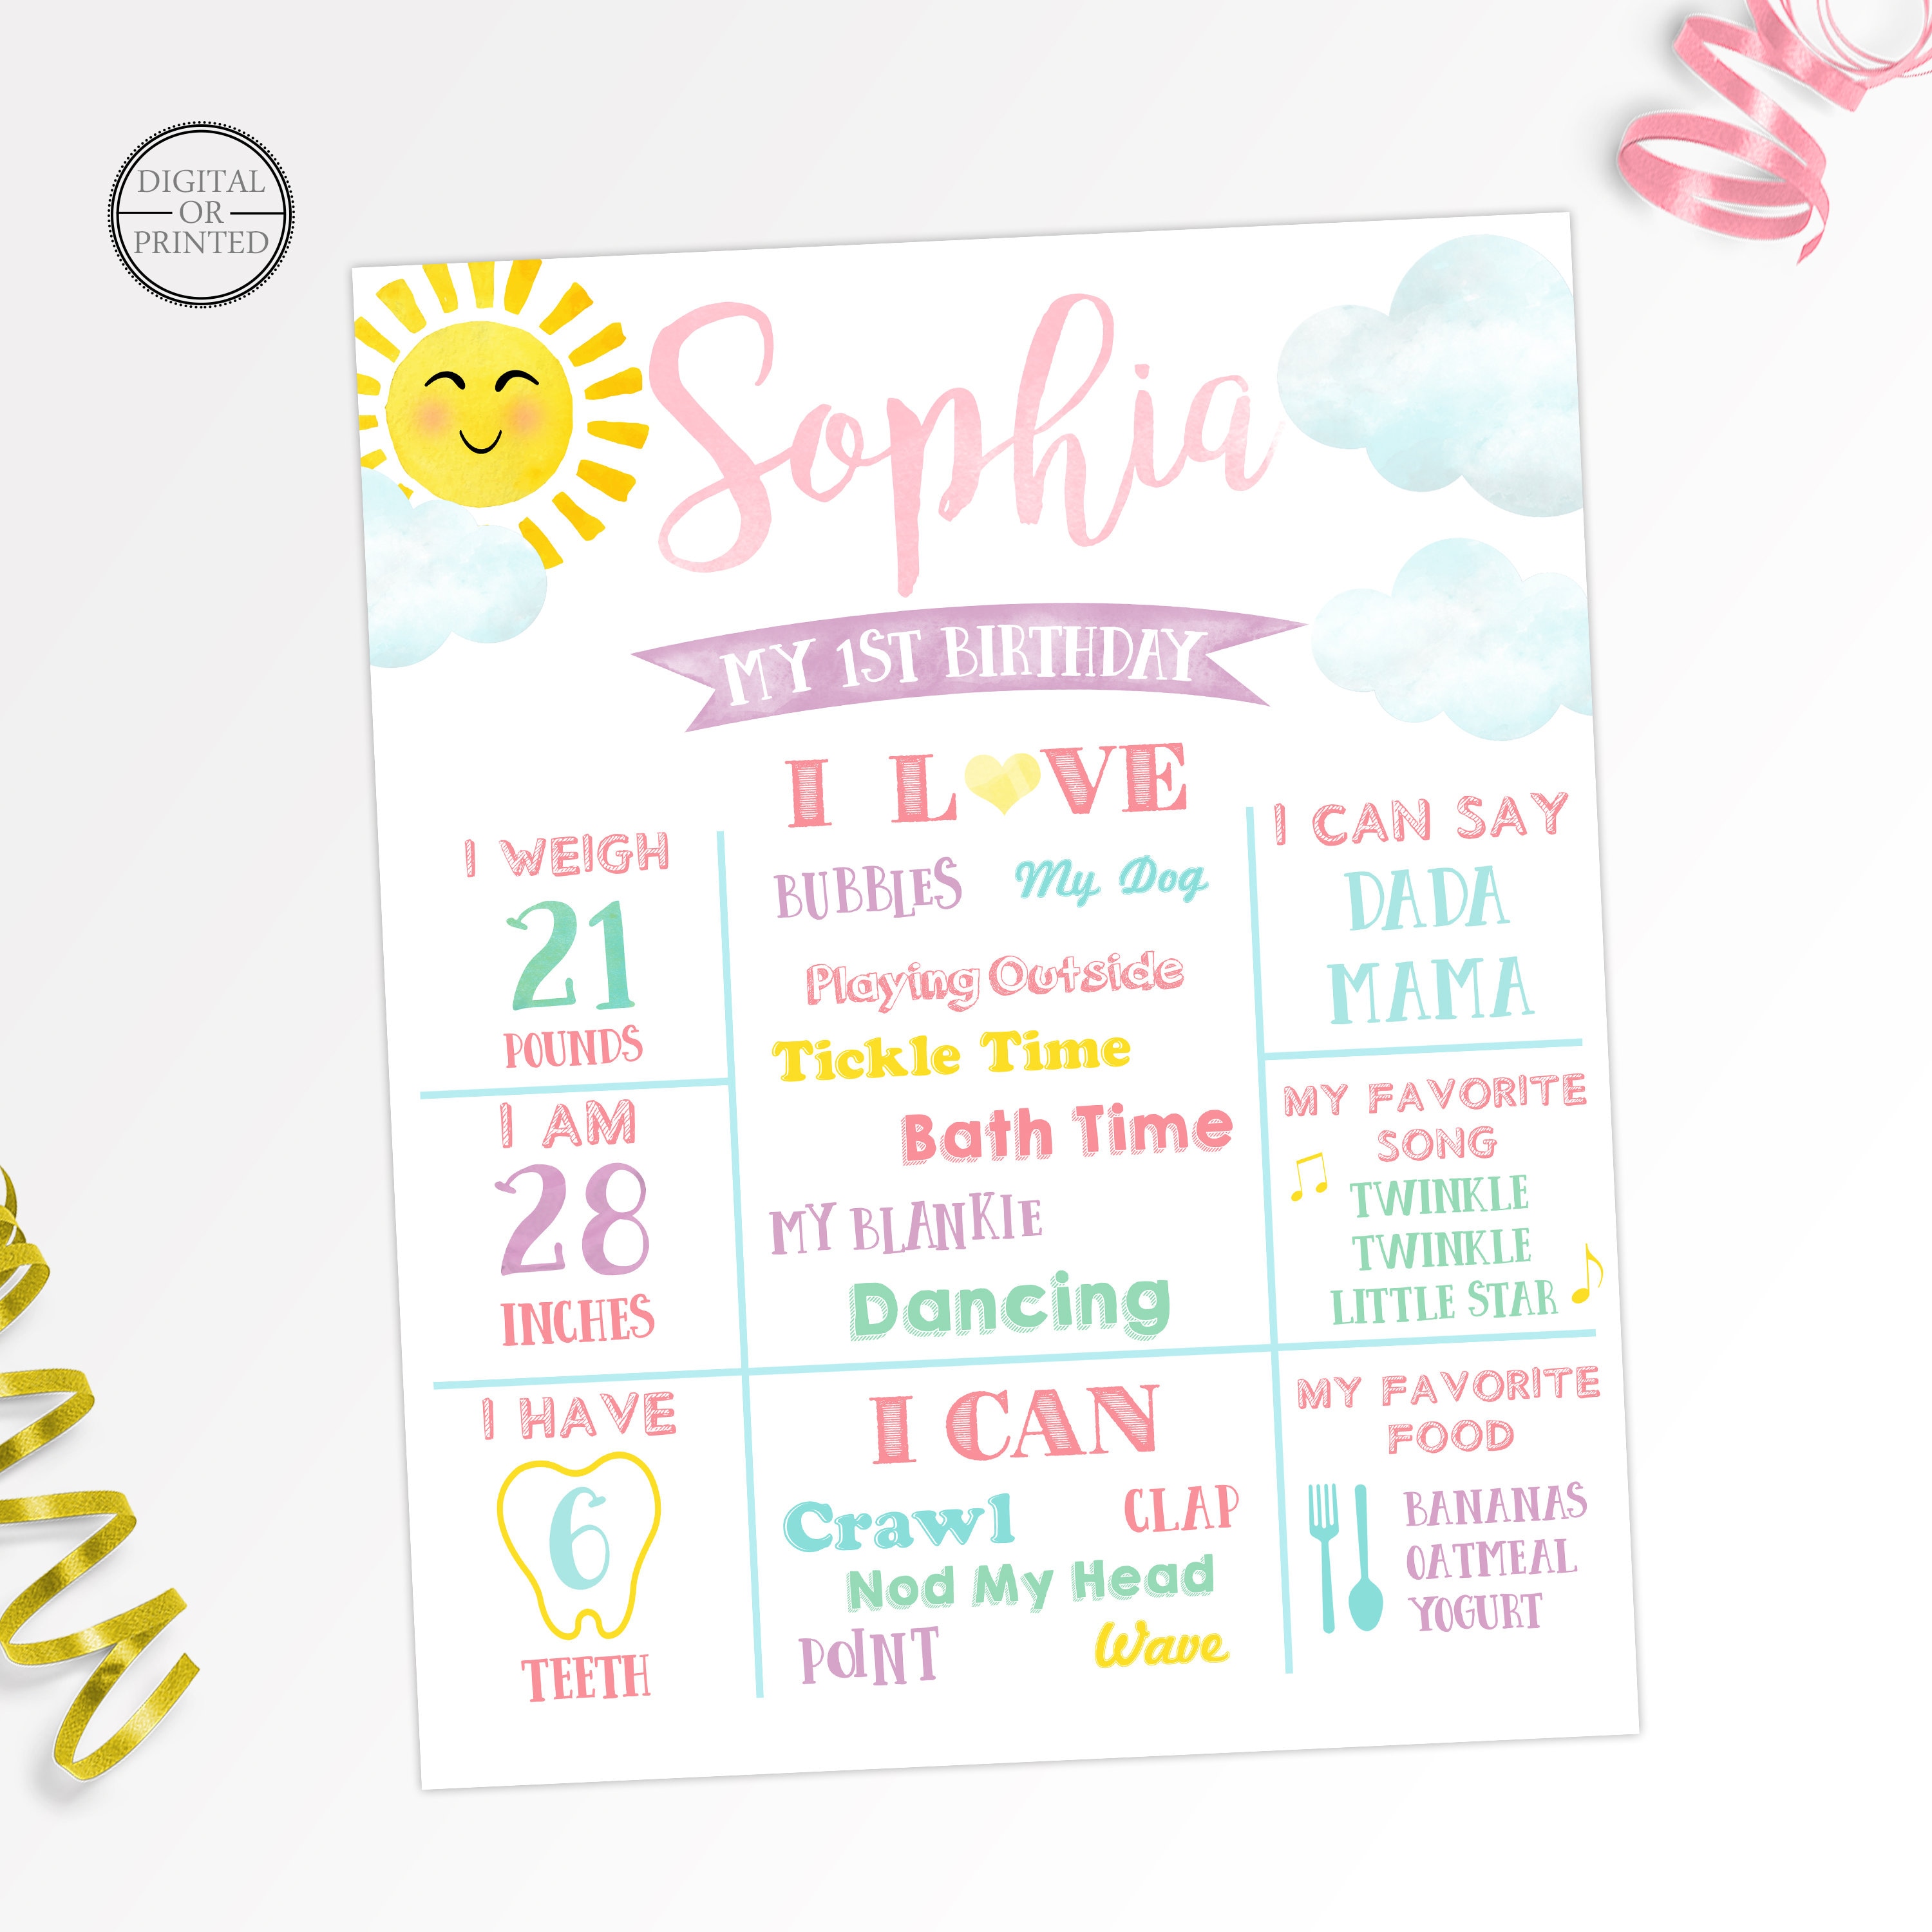 DIGITAL
OR
PRINTED
Sophia
MY 1ST BIRTHDAY
I WEIGH
21
POUNDS
I AM
28
INCHES
I HAVE
6
TEETH
I LVE
BUBBLES My Dog
Playing Outside
Tickle Time
Bath Time
MY BLANKIE
Dancing
I CAN
Crawl CLAP
Nod My Head
POINT Wave
I CAN SAY
DADA
MAMA
MY FAVORITE
SONG
TWINKLE
TWINKLE
LITTLE STAR
MY FAVORITE
FOOD
BANANAS
OATMEAL
YOGURT